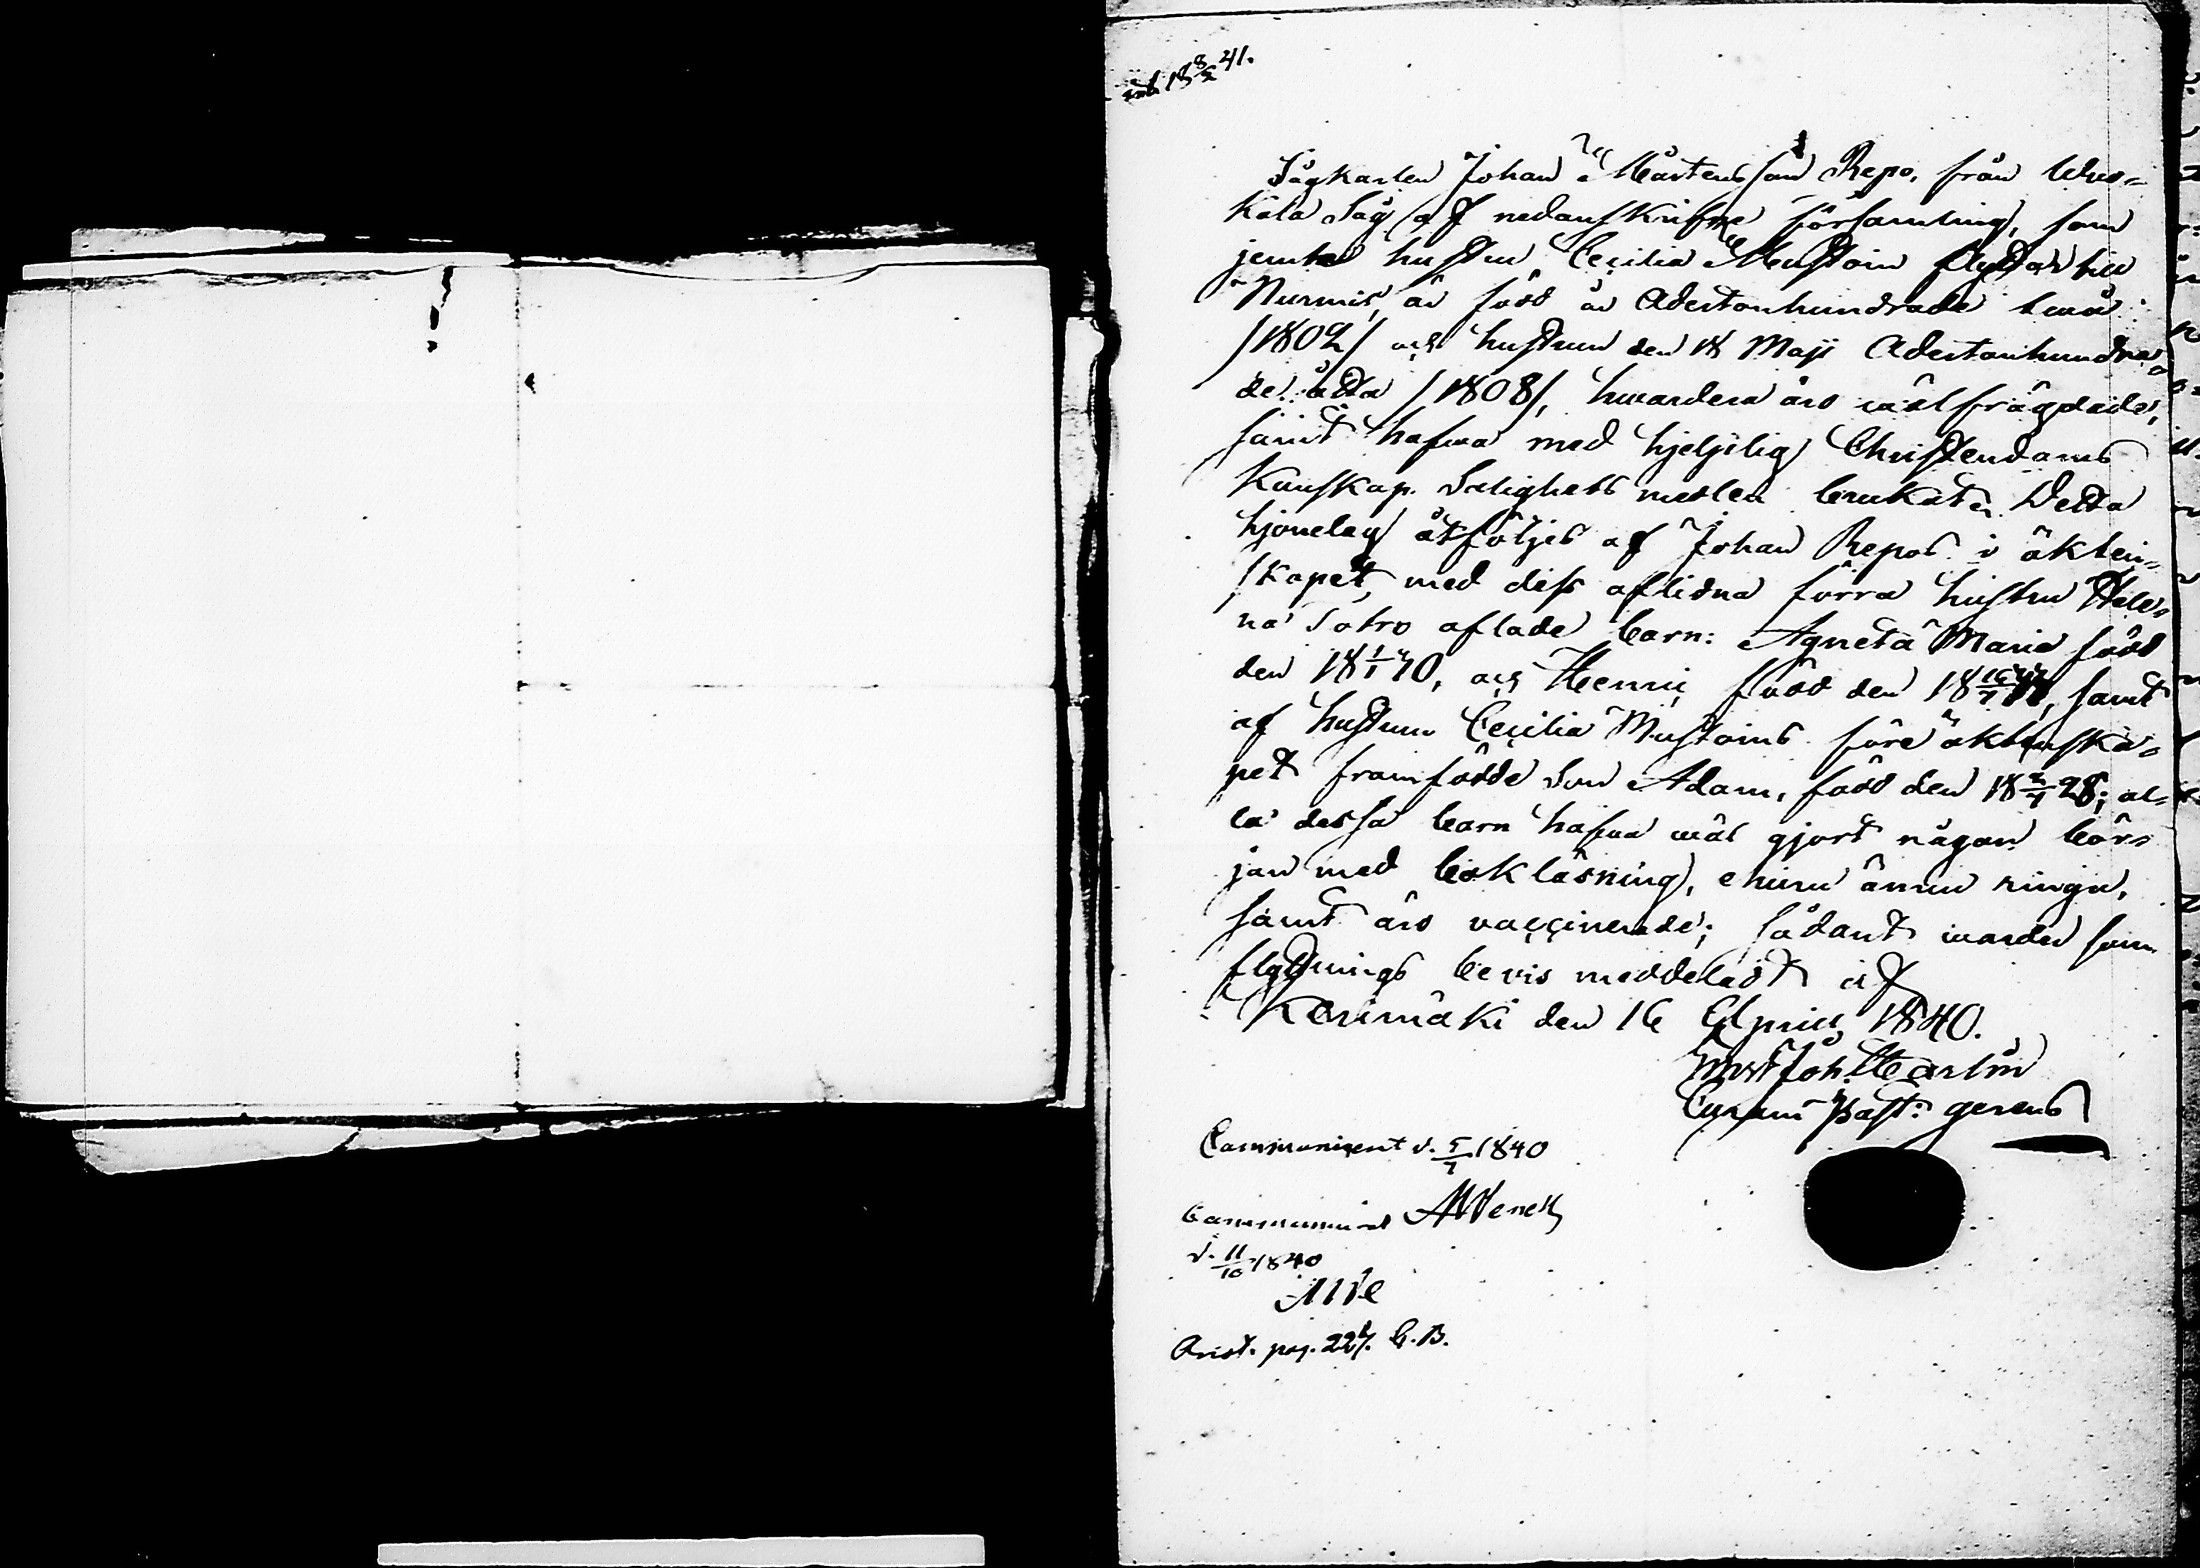 Sågkarlen Johan Mårtensson Repo, från
kala Såg af nedanskrifne församling, som
jemte hustru Cecilia Mustoin flyttar till
Nurmis, är född år Adertonhundrade twå
/1802/ och hustrun den 18 Maji Adertonhundra-
de åtta /1808/, hwardera äro wälfrägdade,
samt hafwa med hjelplig Christendoms
Kunskap Salighets medlen brukat. Detta
hjonelag åtföljes af Johan Repos i äkten-
skapet med dess aflidna förra hustru Hele-
na aflade barn: Agneta Maria född
den och Henric född den samt
af hustrun Cecilia Mustoins före äktenska-
pet framfödde Son Adam, född den 18 2/4 28; al-
la dessa barn hafwa wäl gjort någon bör-
jan med bokläsning, ehuru ännu ringa,
samt äro vaccinerade; sådant warder som
flyttnings bevis meddeladt af
Kerimäki den 16 April 1840.
Joh.
Past: gerens
Communicerat d. 5/7 1840
Communicerat
d. 11/10 1840
pag. 227. C.B.